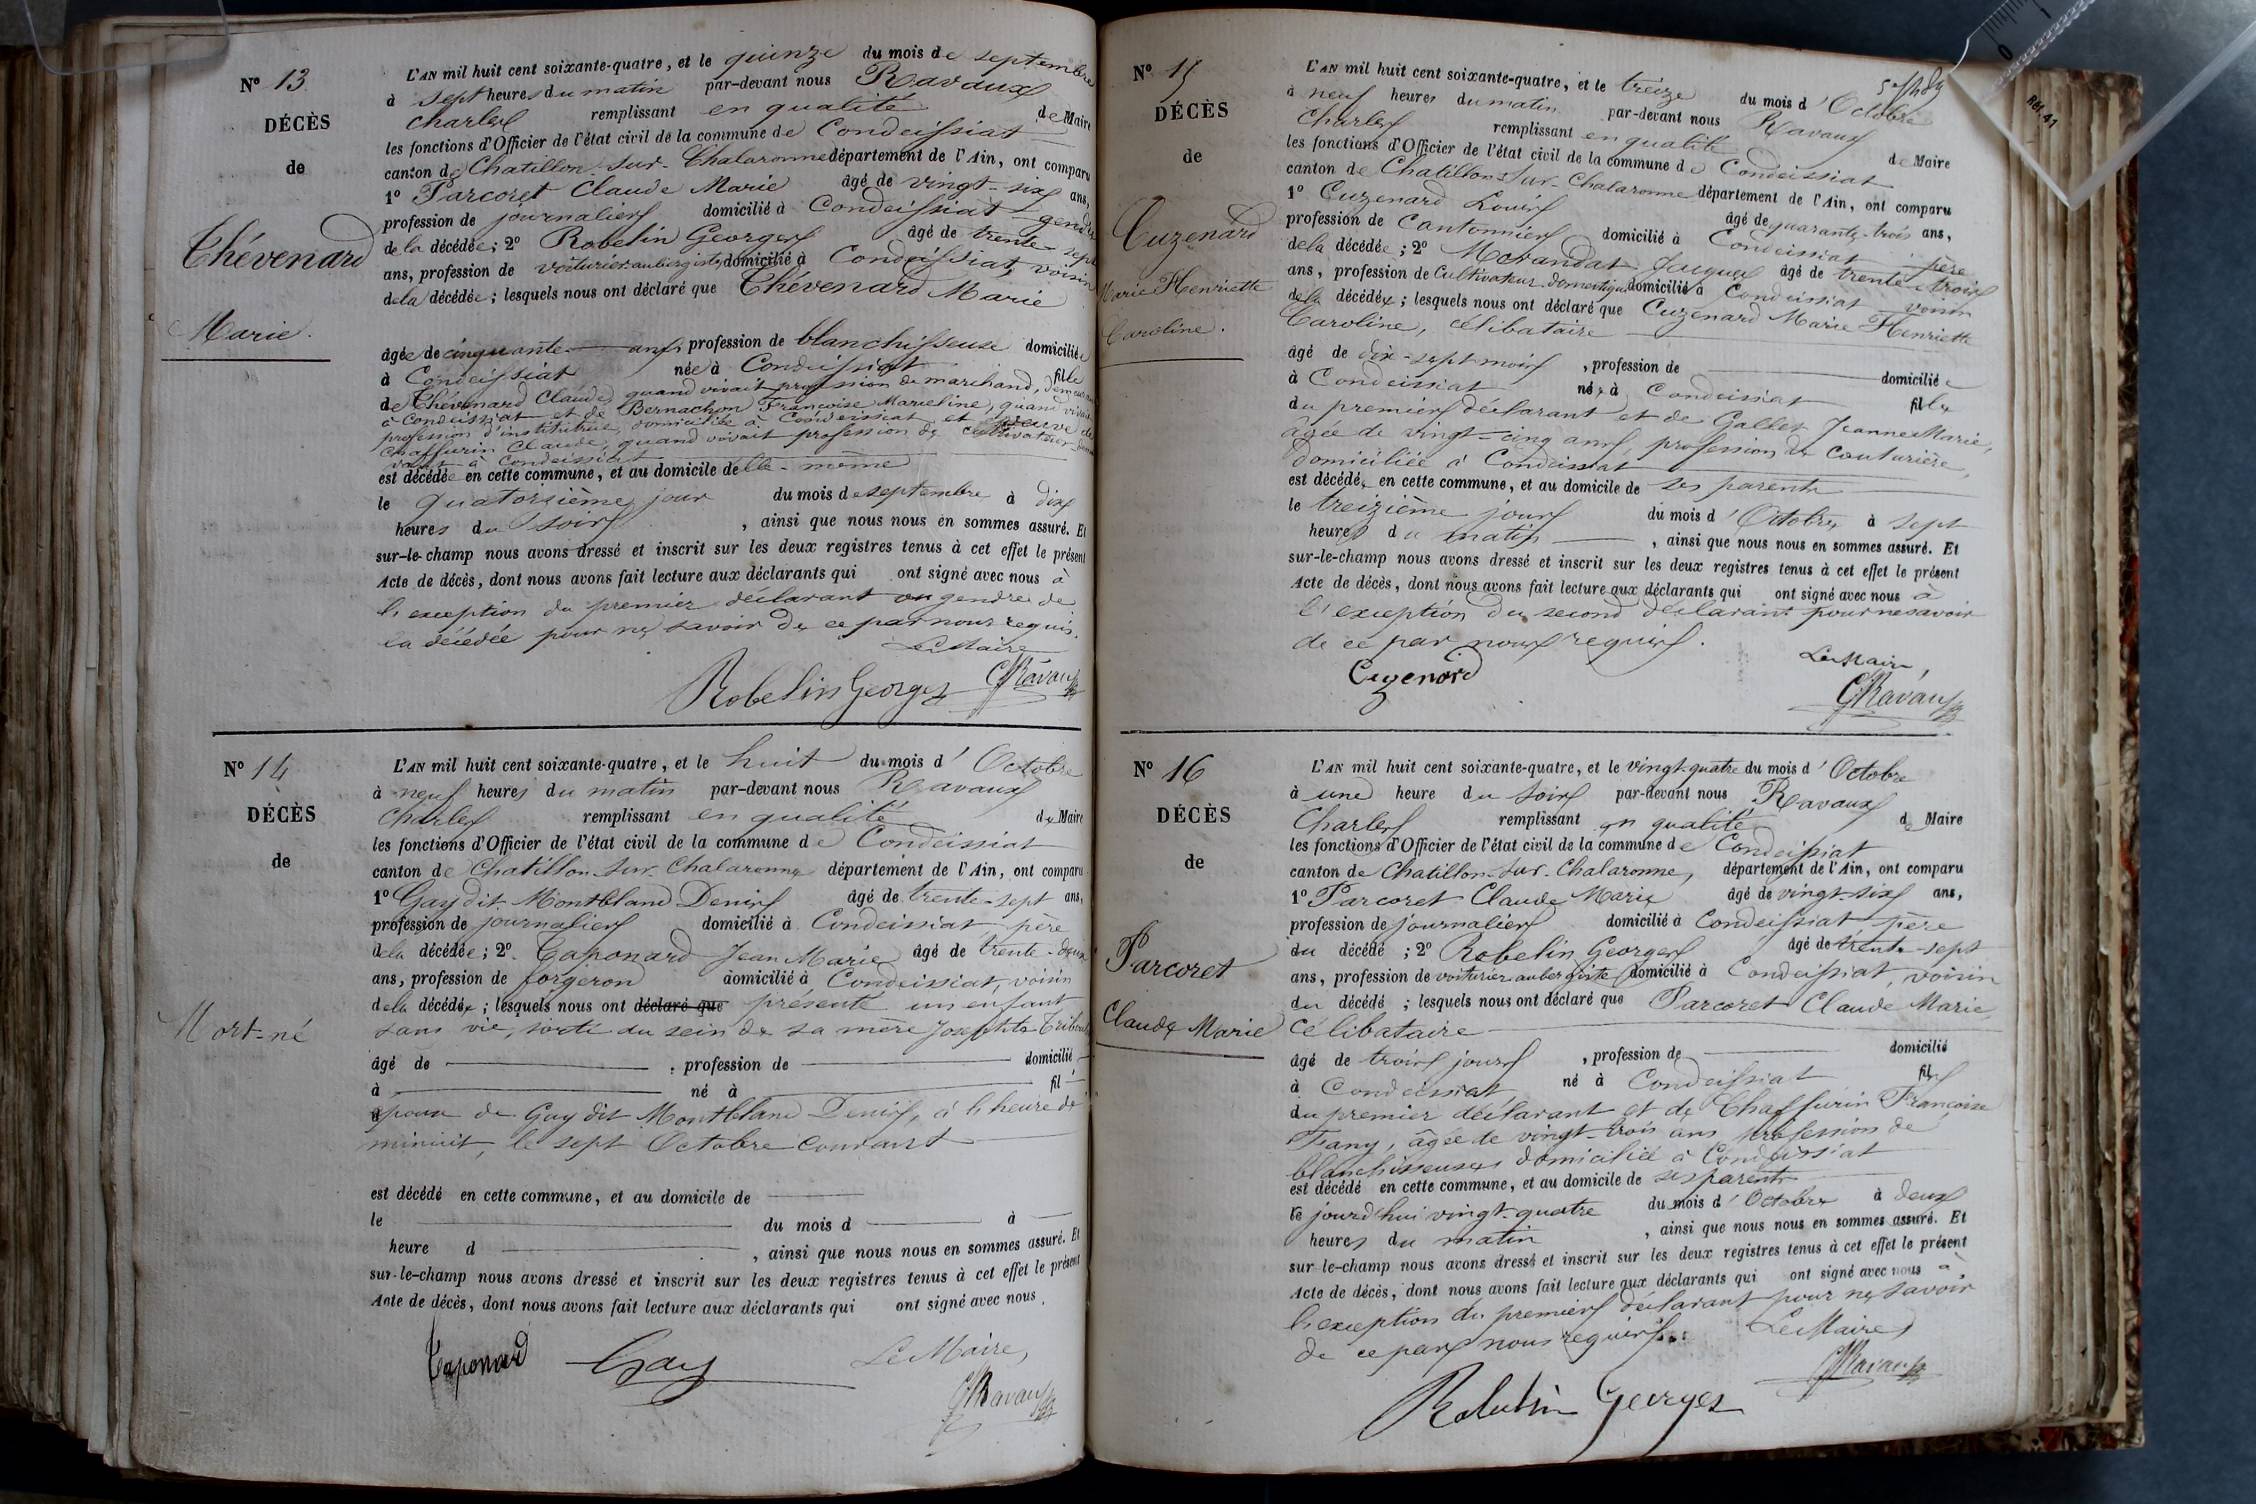 N° 13
DÉCÈS
de
Thévenard
Marie.
L'AN mil huit cent soixante-quatre, et le quinze du mois de septembre
à sept heures du matin par-devant nous Ravaux
Charles remplissant en qualité de Maire
les fonctions d'Officier de l'état civil de la commune de Condeissiat
canton de Chatillon-sur-Chalaronne département de l'Ain, ont comparu
1° Parcoret Claude Marie âgé de vingt-six ans,
profession de journalier domicilié à Condeissiat gendre
de la décédée; 2° Robelin Georges âgé de trente-sept
ans, profession de voiturier-aubergiste domicilié à Condeissiat, voisin
de la décédée; lesquels nous ont déclaré que Thévenard Marie
âgée de cinquante ans, profession de blanchisseuse domiciliée
à Condeissiat née à Condeissiat fille
de Thévenard Claude, quand vivait profession de marchand,
à Condeissiat et de Bernachon Françoise Marceline, quand vivait
profession d'institutrice, domiciliée à Condeissiat et veuve de
Chaffurin Claude, quand vivait profession de cultivateur
à Condeissiat
est décédée en cette commune, et au domicile de elle-même
le quatorzième jour du mois de septembre à dix
heures du soir, ainsi que nous nous en sommes assuré. Et
sur-le-champ nous avons dressé et inscrit sur les deux registres tenus à cet effet le présent
Acte de décès, dont nous avons fait lecture aux déclarants qui ont signé avec nous à
l'exception du premier déclarant ou gendre de
la décédée pour ne savoir de ce par nous requis.
Le Maire
Robelin Georges CRavaux
N° 14
DÉCÈS
de
Mort-né
L'AN mil huit cent soixante-quatre, et le huit du mois d'Octobre
à neuf heures du matin par-devant nous Ravaux
Charles remplissant en qualité de Maire
les fonctions d'Officier de l'état civil de la commune de Condeissiat
canton de Chatillon-sur-Chalaronne département de l'Ain, ont comparu
1° Gay dit Montbland Denis âgé de trente-sept ans,
profession de journalier domicilié à Condeissiat, père
de la décédée; 2° Taponard Jean Marie âgé de trente-deux
ans, profession de forgeron domicilié à Condeissiat, voisin
de la décédée; lesquels nous ont déclaré que présenté un enfant
sans vie, sorti du sein de sa mère Josephte
âgé de , profession de domicilié
à né à fil
épouse de Gay dit Montbland Denis, à l'heure de
minuit, le sept Octobre courant
est décédé en cette commune, et au domicile de
le du mois d à
heure d , ainsi que nous nous en sommes assuré. Et
sur-le-champ nous avons dressé et inscrit sur les deux registres tenus à cet effet le présent
Acte de décès, dont nous avons fait lecture aux déclarants qui ont signé avec nous.
Taponard Gay Le Maire,
CRavaux
N° 15
DÉCÈS
de
Cuzenard
Marie Henriette
Caroline.
L'AN mil huit cent soixante-quatre, et le treize du mois d'Octobre
à neuf heures du matin par-devant nous Ravaux
Charles remplissant en qualité de Maire
les fonctions d'Officier de l'état civil de la commune de Condeissiat
canton de Chatillon-sur-Chalaronne département de l'Ain, ont comparu
1° Cuzenard Louis âgé de quarante-trois ans,
profession de Cantonnier domicilié à Condeissiat père
de la décédée; 2° Morandat Jacques âgé de trente-trois
ans, profession de Cultivateur domestique domicilié à Condeissiat voisin
de la décédée; lesquels nous ont déclaré que Cuzenard Marie Henriette
Caroline, célibataire
âgé de dix-sept mois, profession de domiciliée
à Condeissiat née à Condeissiat fille
du premier déclarant et de Gallet Jeanne Marie,
âgée de vingt-cinq ans, profession de couturière,
domiciliée à Condeissiat
est décédée en cette commune, et au domicile de ses parents
le treizième jour du mois d'Octobre à sept
heures du matin, ainsi que nous nous en sommes assuré. Et
sur-le-champ nous avons dressé et inscrit sur les deux registres tenus à cet effet le présent
Acte de décès, dont nous avons fait lecture aux déclarants qui ont signé avec nous à
l'exception du second déclarant pour ne savoir
de ce par nous requis.
Le Maire,
Cuzenard
CRavaux
N° 16
DÉCÈS
de
Parcoret
Claude Marie
L'AN mil huit cent soixante-quatre, et le vingt-quatre du mois d'Octobre
à une heure du soir par-devant nous Ravaux
Charles remplissant en qualité de Maire
les fonctions d'Officier de l'état civil de la commune de Condeissiat
canton de Chatillon-sur-Chalaronne, département de l'Ain, ont comparu
1° Parcoret Claude Marie âgé de vingt-six ans,
profession de journalier domicilié à Condeissiat père
du décédé; 2° Robelin Georges âgé de trente-sept
ans, profession de voiturier aubergiste domicilié à Condeissiat, voisin
du décédé; lesquels nous ont déclaré que Parcoret Claude Marie,
célibataire
âgé de trois jours, profession de domicilié
à Condeissiat né à Condeissiat fils
du premier déclarant et de Chaffurin Françoise
Fany, âgée de vingt-trois ans profession de
blanchisseuse domiciliée à Condeissiat
est décédé en cette commune, et au domicile de ses parents
le jourd'hui vingt-quatre du mois d'Octobre à deux
heures du matin, ainsi que nous nous en sommes assuré. Et
sur-le-champ nous avons dressé et inscrit sur les deux registres tenus à cet effet le présent
Acte de décès, dont nous avons fait lecture aux déclarants qui ont signé avec nous à
l'exception du premier déclarant pour ne savoir
de ce par nous requis.
Le Maire
CRavaux
Robelin Georges